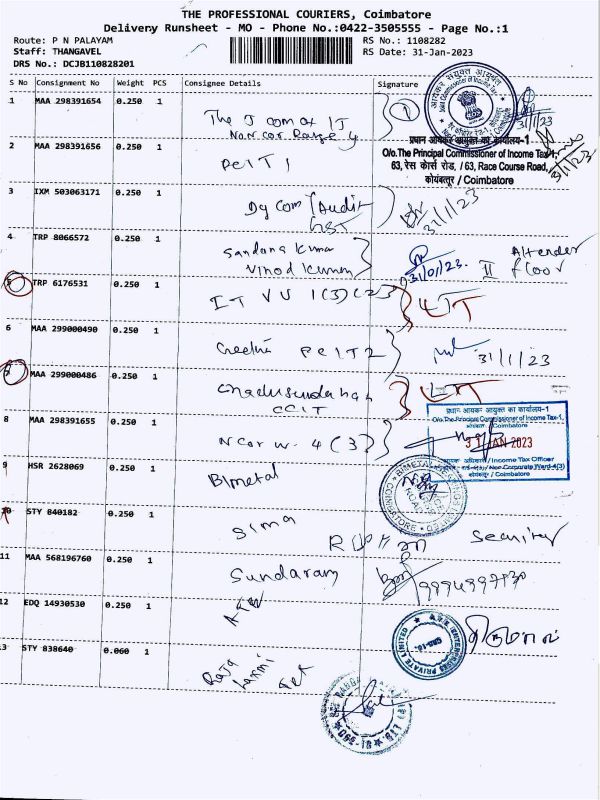 THE PROFESSIONAL COURIERS, Coimbatore
Delivery Runsheet - MO - Phone No.:0422-3505555 - Page No.:1
Route: P N PALAYAM
RS No.: 1108282
Staff: THANGAVEL
RS Date: 31-Jan-2023
DRS No.: DCJB110828201
S No Consignment No Weight PCS Consignee Details Signature
1 MAA 298391654 0.250 1
The J com of IT
Non cor Range 4
31/1/23
प्रधान आयकर आयुक्त का कार्यालय-1
O/o.The Principal Commissioner of Income Tax-1,
63, रेस कोर्स रोड, / 63, Race Course Road,
कोयंबत्तूर / Coimbatore
31/1/23
2 MAA 298391656 0.250 1
PCIT 1
3 IXM 503063171 0.250 1
Dy Com (Audit
GST
31/1/23
4 TRP 8066572 0.250 1
Sandana Kumar
Vinod Kumar
31/01/23.
Attender
II floor
5 TRP 6176531 0.250 1
IT
6 MAA 299000490 0.250 1
PCIT 2
31/1/23
7 MAA 299000486 0.250 1
CCIT
8 MAA 298391655 0.250 1
N Cor W. 4 (3)
प्रधान आयकर आयुक्त का कार्यालय-1
O/o.The Principal Commissioner of Income Tax-1,
/ Coimbatore
31 JAN 2023
/ Income Tax Officer
/ Non Corporate Ward-4(3)
कोयंबत्तूर / Coimbatore
9 HSR 2628069 0.250 1
Bimetal
10 STY 840182 0.250 1
Sima
Security
11 MAA 568196760 0.250 1
Sundaram
12 EDQ 14930530 0.250 1
13 STY 838640 0.060 1
Raja
Laxmi